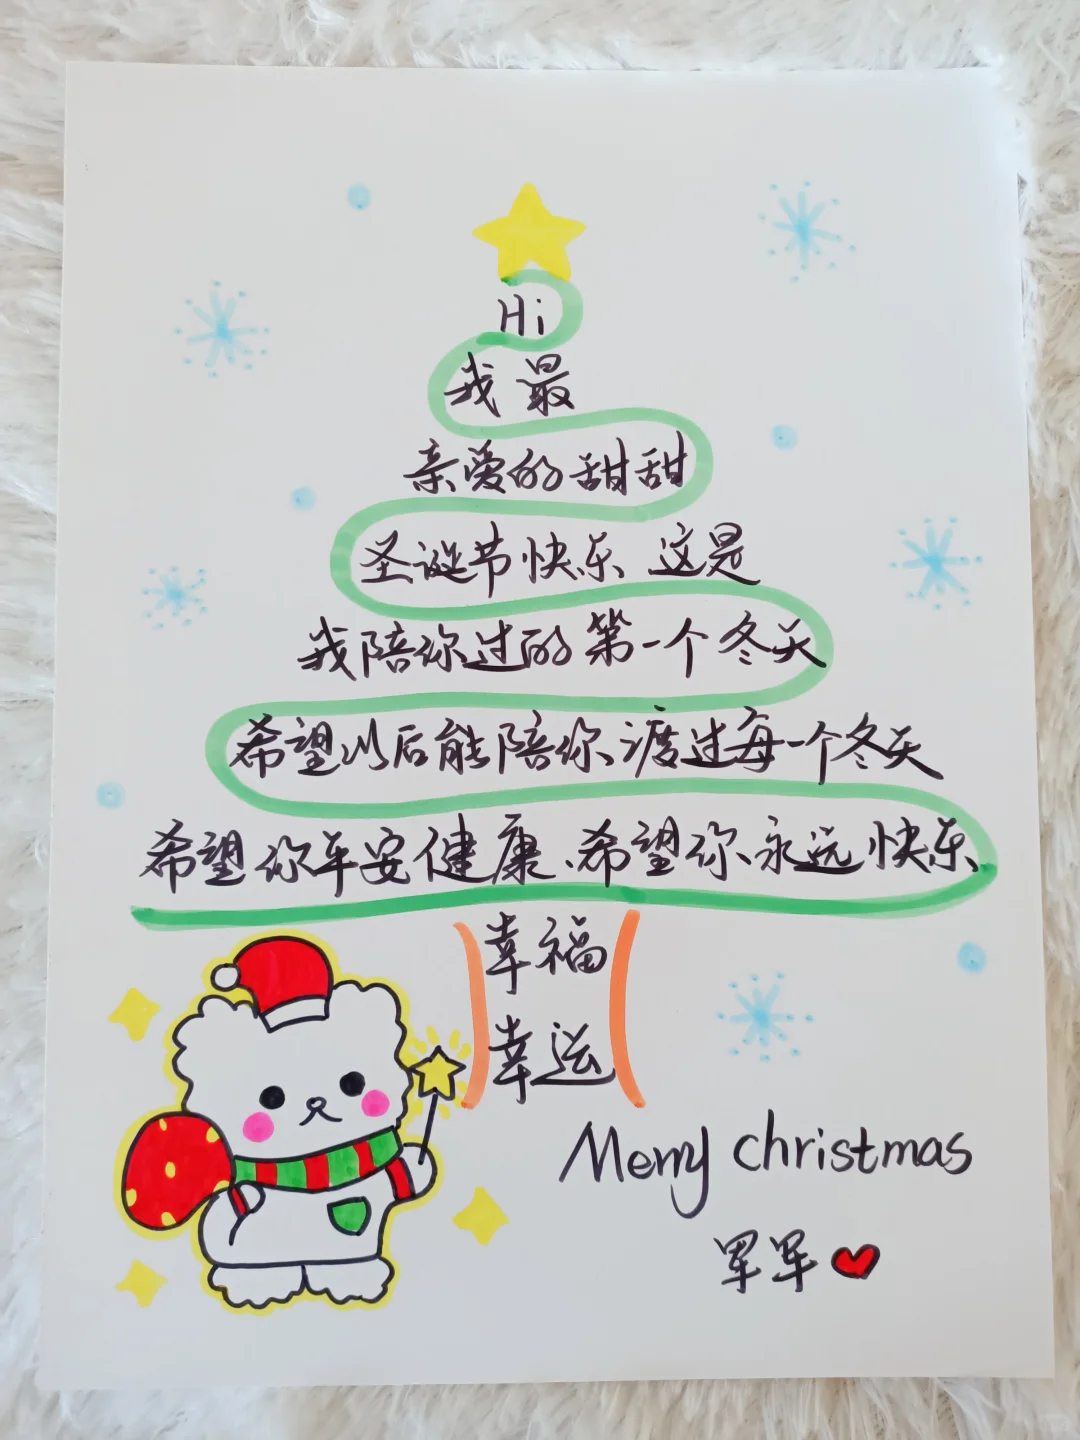 Hi
我最
亲爱的甜甜
圣诞节快乐 这是
我陪你过的第一个冬天
希望以后能陪你渡过每一个冬天
希望你平安健康、希望你永远快乐
幸福
幸运
Merry christmas
军军